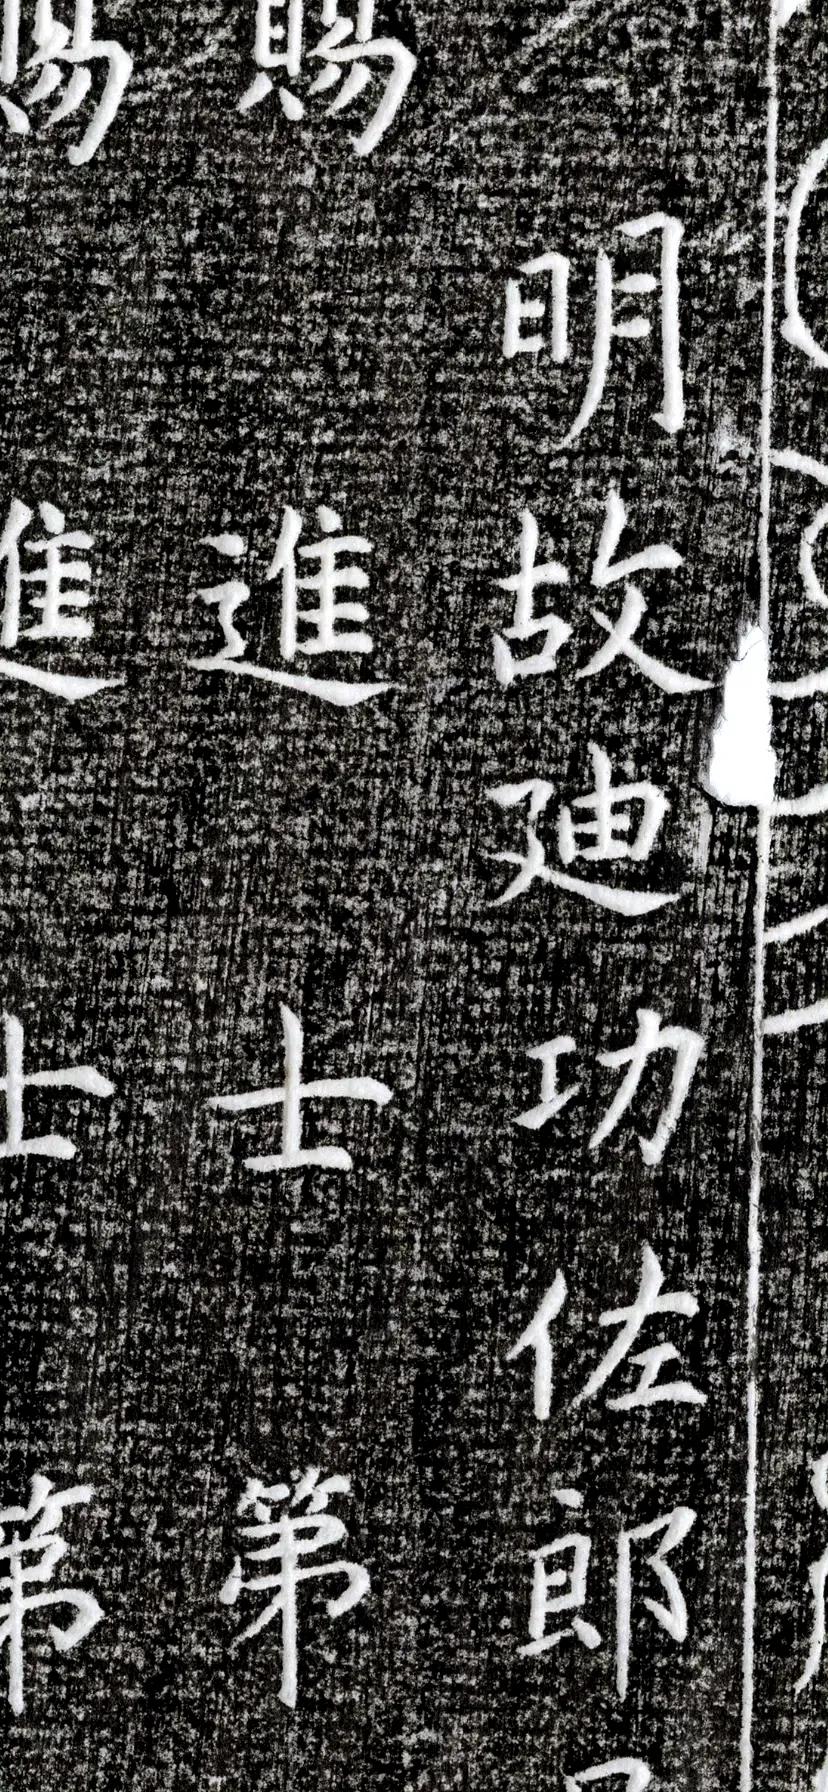 明故廸功佐郎
賜進士第
賜進士第